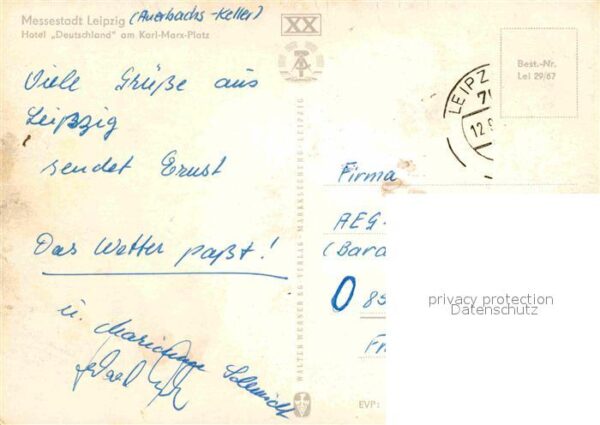 Messestadt Leipzig (Auerbachs-Keller)
Hotel „Deutschland" am Karl-Marx-Platz
XX
Best.-Nr.
Lei 29/67
LEIPZ
12.9
Viele Grüße aus
Leipzig
sendet Ernst
Das Wetter paßt!
u. Marianne Schmidt
WALTER WERNER KG VERLAG · MARKKLEEBERG-LEIPZIG
EVP:
Firma
AEG.
(Bara
O 85
Fr
privacy protection
Datenschutz